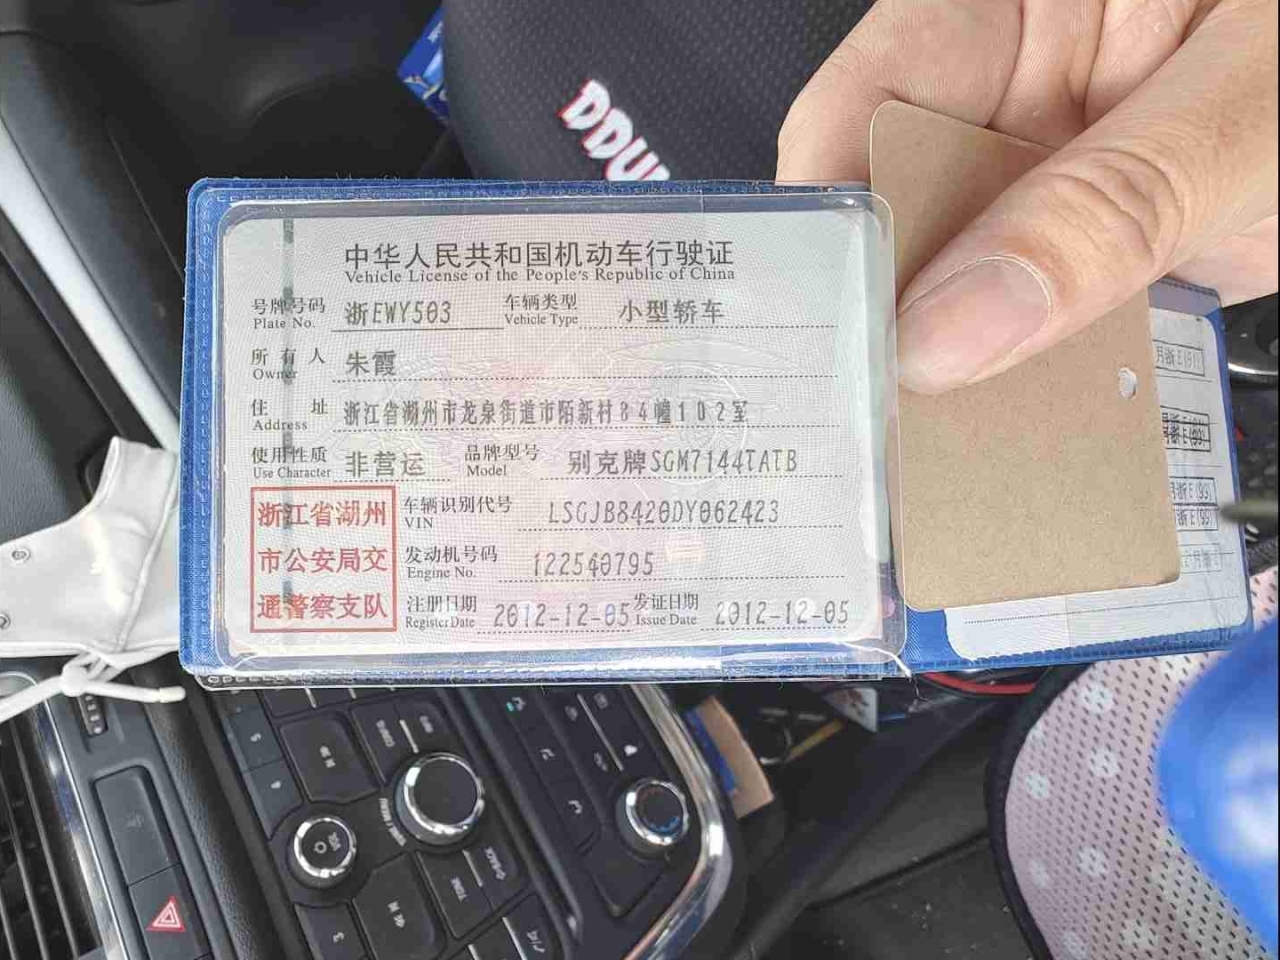 DDU
中华人民共和国机动车行驶证
Vehicle License of the People's Republic of China
号牌号码 浙EWY503 车辆类型 小型轿车
Plate No. Vehicle Type
所有人 朱霞
Owner
住址 浙江省湖州市龙泉街道市陌新村84幢102室
Address
使用性质 非营运 品牌型号 别克牌SGM7144TATB
Use Character Model
浙江省湖州
市公安局交
通警察支队
车辆识别代号 LSGJB8420DY062423
VIN
发动机号码 122540795
Engine No.
注册日期 2012-12-05 发证日期 2012-12-05
Register Date Issue Date
VOL
TONE